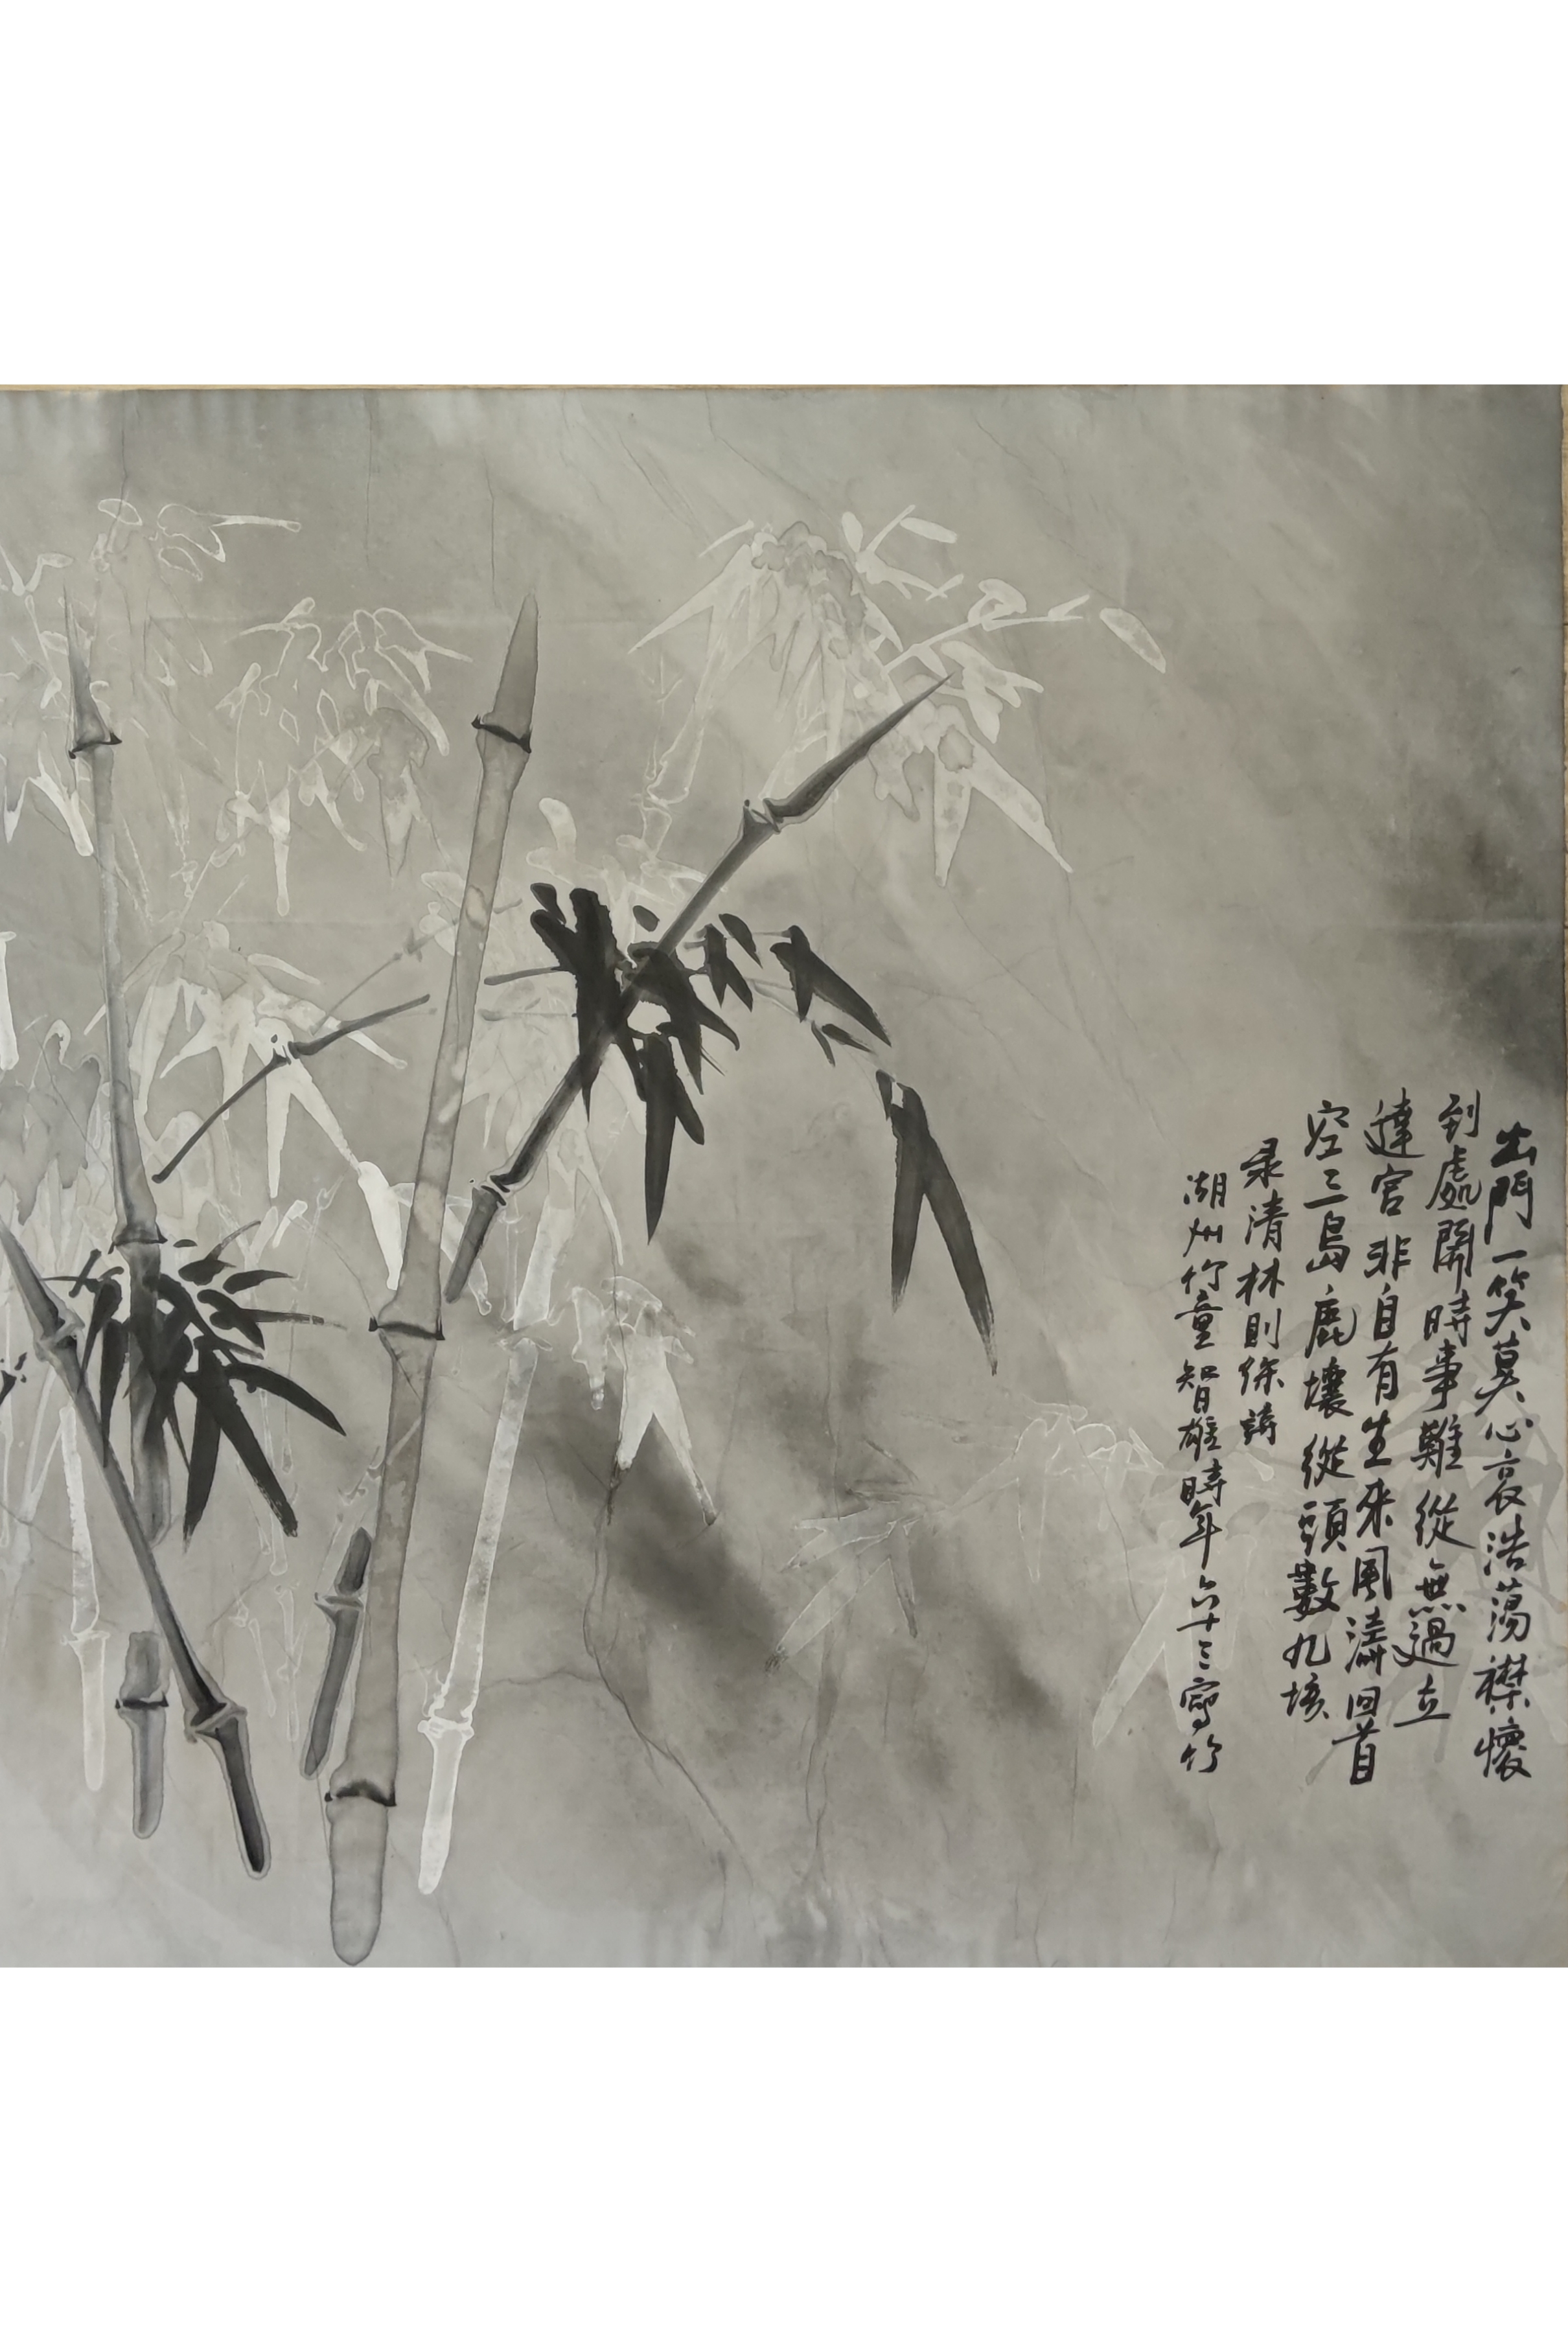 出門一笑莫心哀浩蕩襟懷
到處開時事難從無過立
達官非自有生來風濤回首
空三島塵壤從頭數九垓
录清林則徐詩
湖州竹童智雄時年六十三寫竹